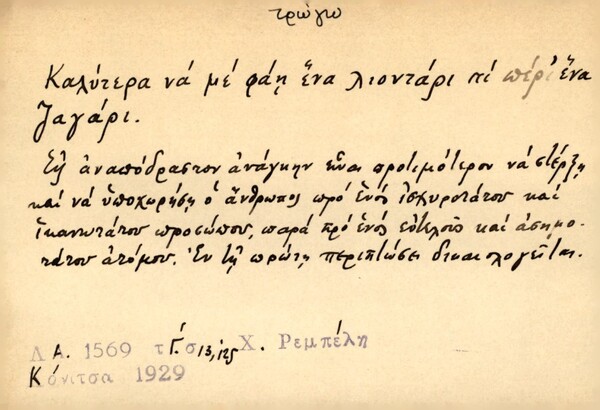 τρώγω
Καλύτερα νά μέ φάῃ ἕνα λιοντάρι πέρι ἕνα
ζαγάρι.
Εἰς ἀναπόδραστον ἀνάγκην εἶναι προτιμότερον νά στέρξῃ
καί νά ὑποχωρήσῃ ὁ ἄνθρωπος πρό ἑνός ἰσχυροτάτου καί
ἱκανωτάτου προσώπου, παρά πρό ἑνός εὐτελοῦς καί ἀσημο-
τάτου ἀτόμου. Ἐν τῇ πρώτῃ περιπτώσει δικαιολογεῖται.
Λ.Α. 1569 τ. Γ. σ. 13, 125 Χ. Ρεμπέλη
Κόνιτσα 1929